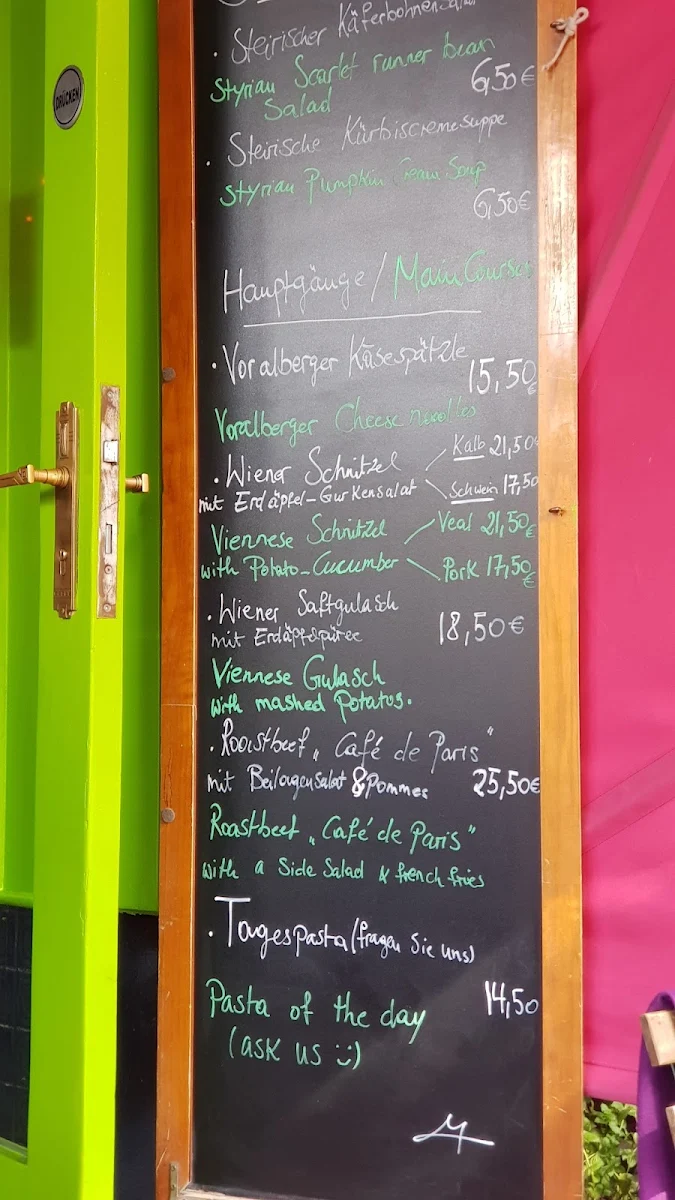 DRÜCKEN
· Steirischer Käferbohnensalat
Styrian Scarlet runner bean
Salad
6,50€
· Steirische Kürbiscremesuppe
Styrian Pumpkin Cream Soup
6,50€
Hauptgänge / Main Course
· Voralberger Käsespätzle
15,50€
Voralberger Cheese noodles
· Wiener Schnitzel
Kalb 21,50€
mit Erdäpfel-Gurkensalat
Schwein 17,50€
Viennese Schnitzel
Veal 21,50€
with Potato-Cucumber
Pork 17,50€
· Wiener Saftgulasch
mit Erdäpfelpüree
18,50€
Viennese Gulasch
with mashed Potatos.
· Roastbeef „Café de Paris"
mit Beilagensalat & Pommes
25,50€
Roastbeef „Café de Paris"
with a Side Salad & french fries
· Tagespasta (fragen Sie uns)
14,50
Pasta of the day
(ask us :))